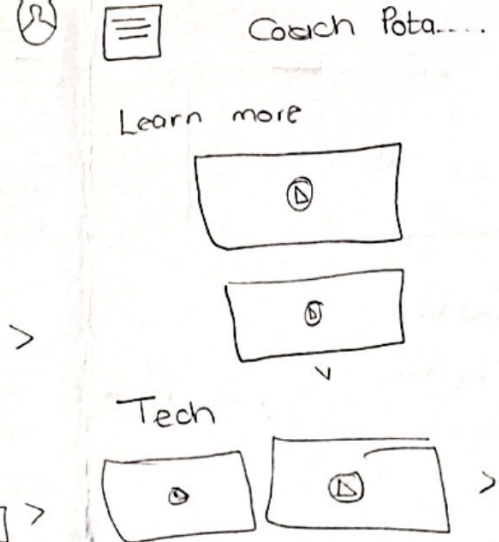 Coach Pota....
Learn more
Tech